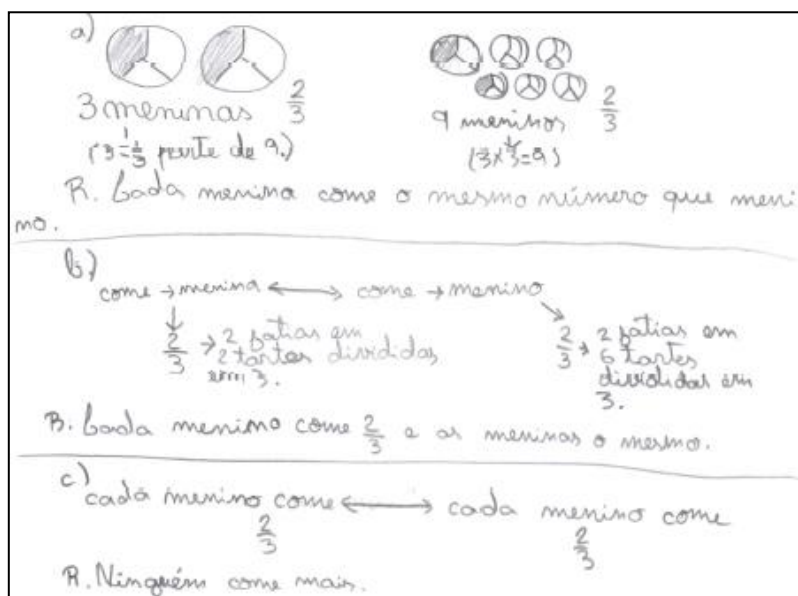 a)
3 meninas 2/3
9 meninos 2/3
R. Cada menina come o mesmo número que meni
no.
b)
come → menina ↔ come → menino
2/3 → 2 fatias em
2 tartes divididas
em 3.
2/3 → 2 fatias em
6 tartes
divididas em
3.
R. Cada menino come 2/3 e as meninas o mesmo.
c)
cada menino come ↔ cada menino come
2/3
2/3
R. Ninguém come mais.